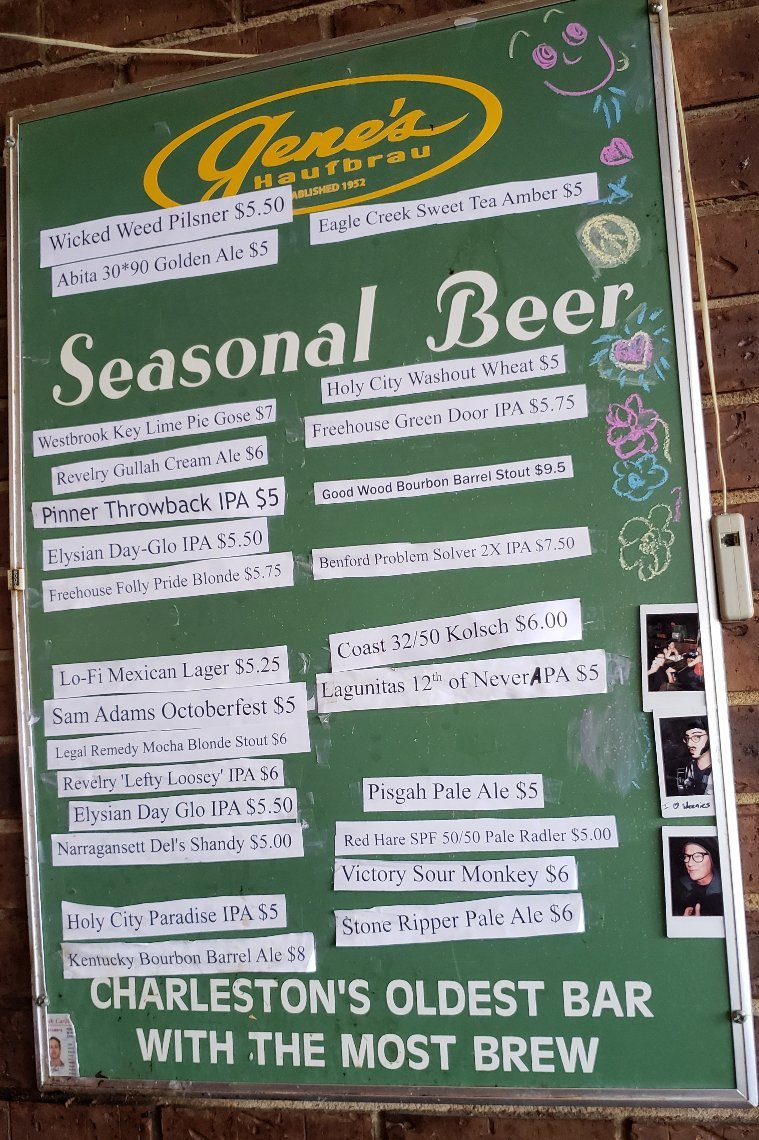 Gene's
Haufbrau
ABLISHED 1952
Wicked Weed Pilsner $5.50
Eagle Creek Sweet Tea Amber $5
Abita 30*90 Golden Ale $5
Seasonal Beer
Holy City Washout Wheat $5
Westbrook Key Lime Pie Gose $7
Freehouse Green Door IPA $5.75
Revelry Gullah Cream Ale $6
Good Wood Bourbon Barrel Stout $9.5
Pinner Throwback IPA $5
Elysian Day-Glo IPA $5.50
Benford Problem Solver 2X IPA $7.50
Freehouse Folly Pride Blonde $5.75
Coast 32/50 Kolsch $6.00
Lo-Fi Mexican Lager $5.25
Lagunitas 12th of NeverAPA $5
Sam Adams Octoberfest $5
Legal Remedy Mocha Blonde Stout $6
Revelry 'Lefty Loosey' IPA $6
Pisgah Pale Ale $5
Elysian Day Glo IPA $5.50
Red Hare SPF 50/50 Pale Radler $5.00
Narragansett Del's Shandy $5.00
Victory Sour Monkey $6
Holy City Paradise IPA $5
Stone Ripper Pale Ale $6
Kentucky Bourbon Barrel Ale $8
CHARLESTON'S OLDEST BAR
WITH THE MOST BREW
I ♡ Weenies